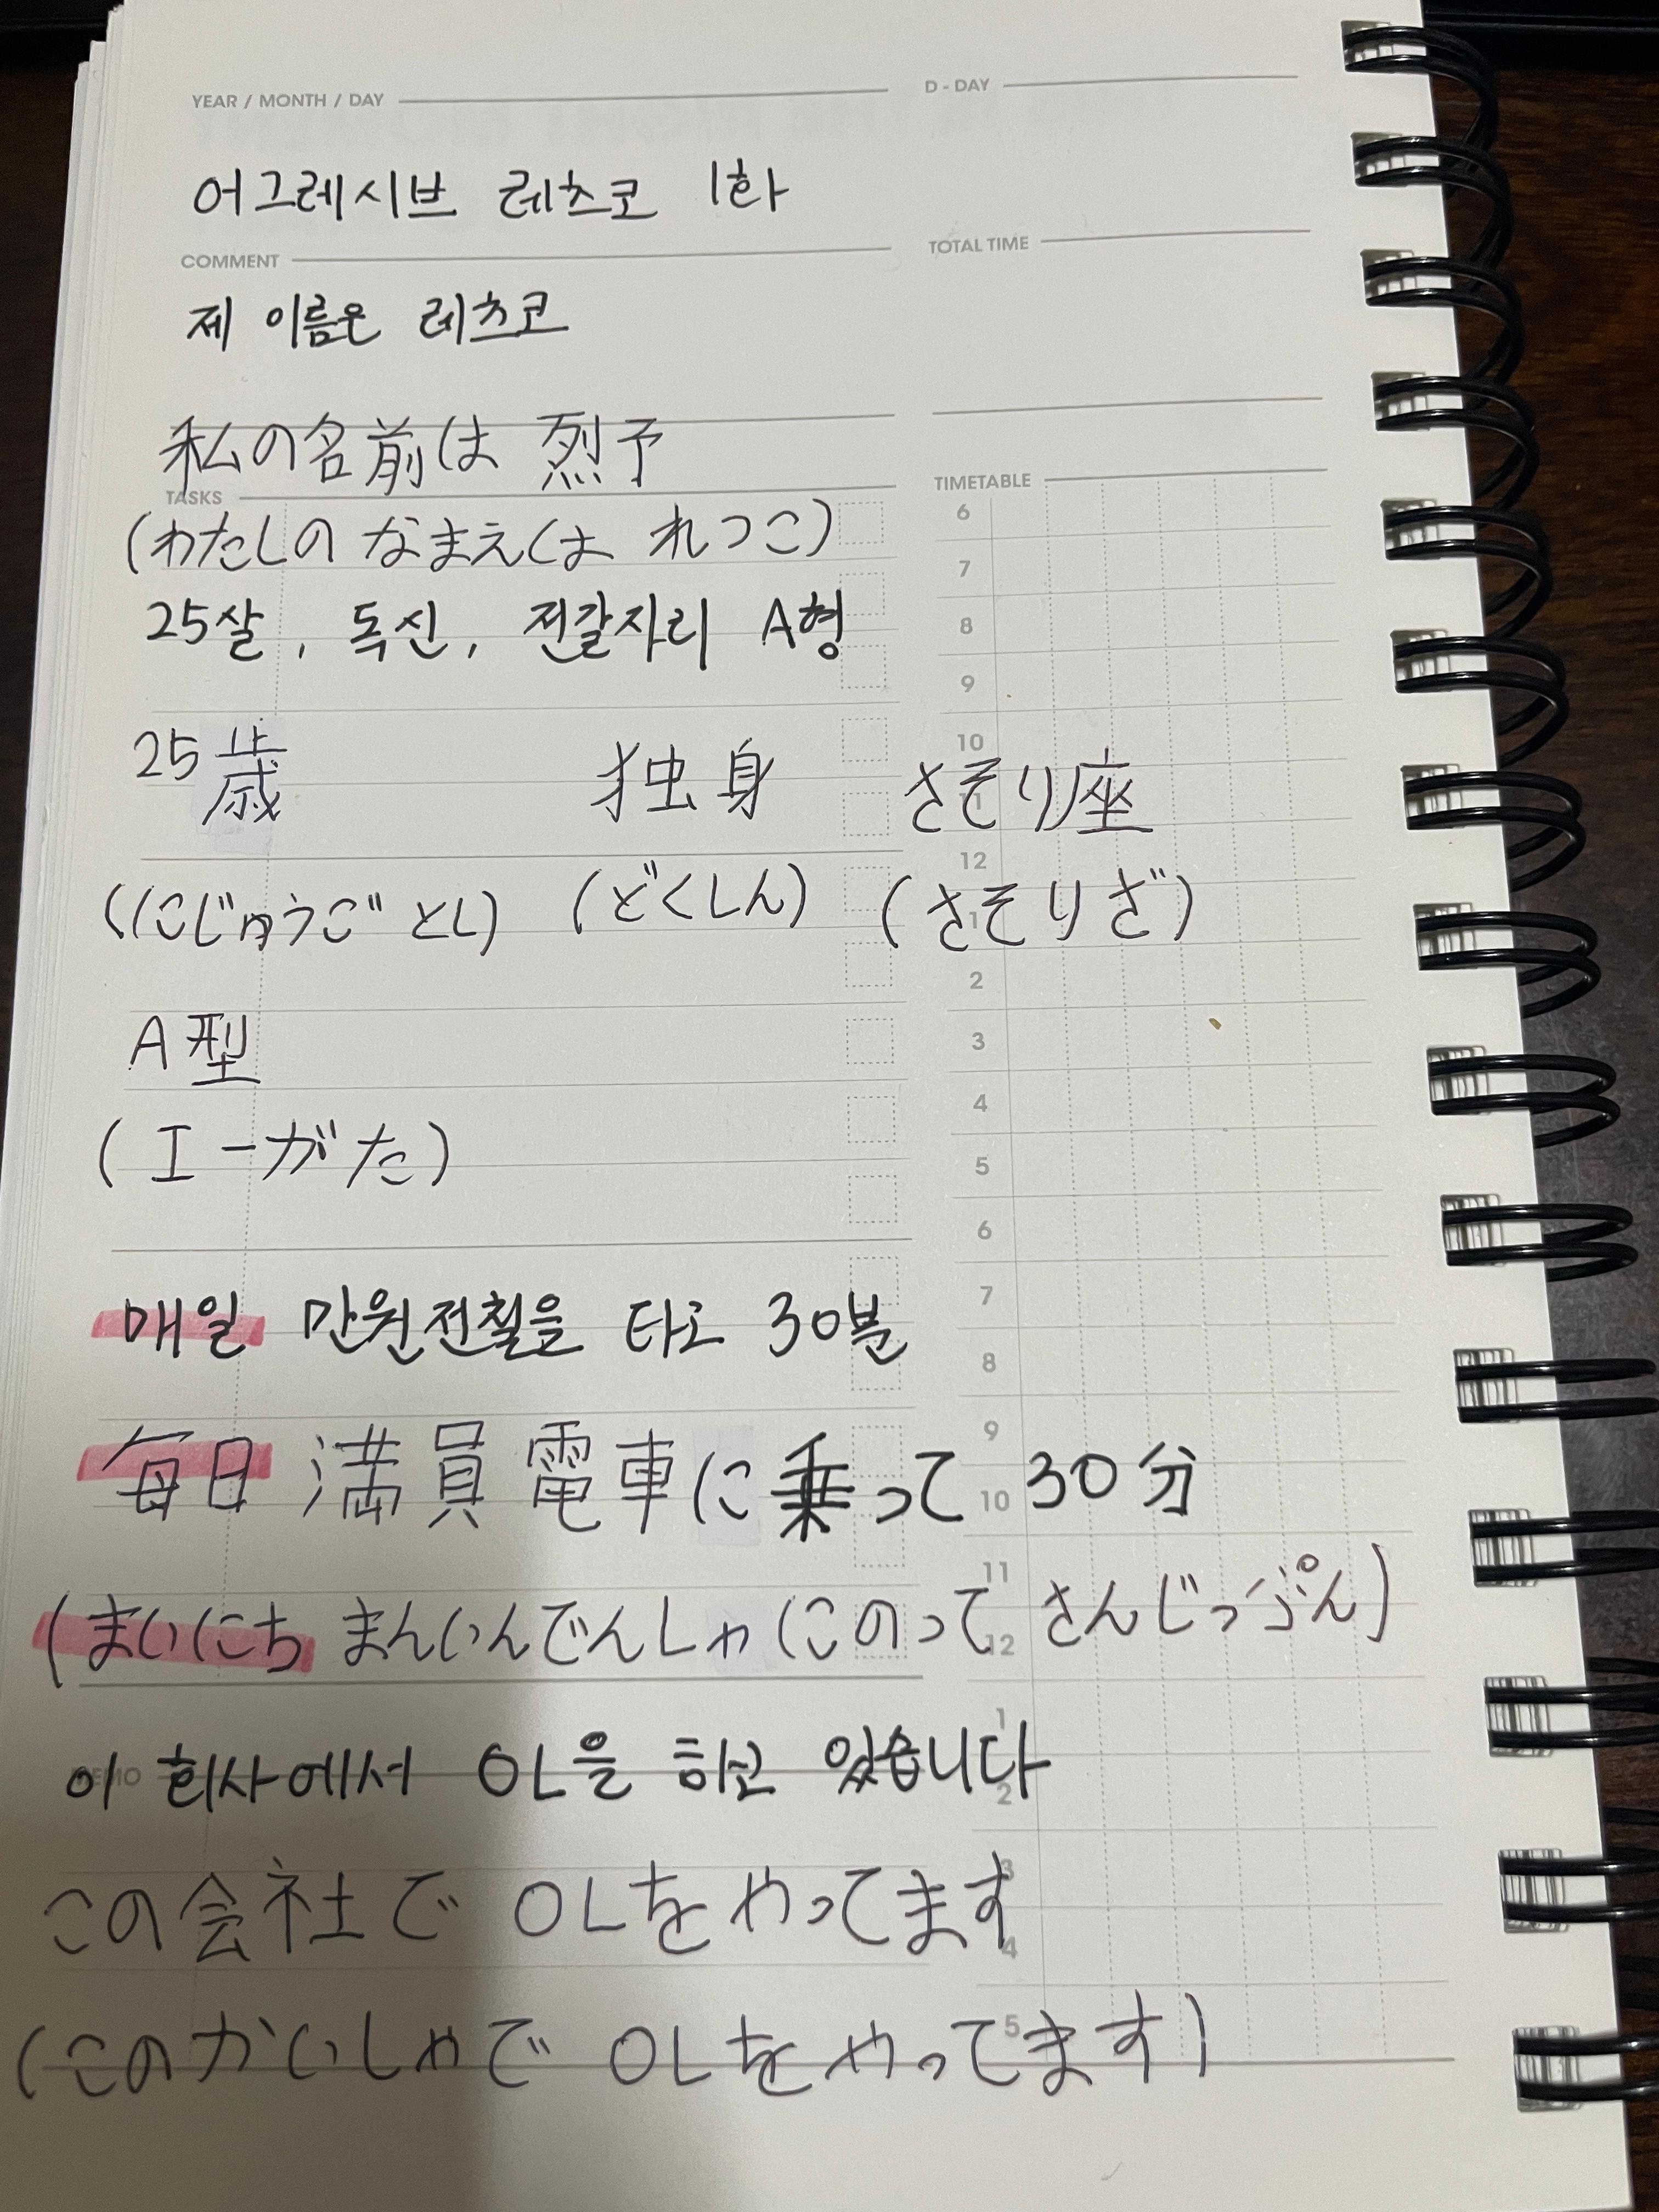 YEAR / MONTH / DAY D - DAY
어그레시브 레츠코 1화
COMMENT TOTAL TIME
제 이름은 레츠코
私の名前は 烈予
TASKS TIMETABLE
(わたしの なまえは れつこ)
25살, 독신, 전갈자리 A형
25歳 独身 さそり座
(にじゅうご とし) (どくしん) (さそりざ)
A型
(エーがた)
매일 만원전철을 타고 30분
毎日 満員電車に乗って 30分
(まいにち まんいんでんしゃにのって さんじっぷん)
이 회사에서 OL을 하고 있습니다
MEMO
この会社で OLをやってます
(このかいしゃで OLをやってます)
6
7
8
9
10
11
12
1
2
3
4
5
6
7
8
9
10
11
12
1
2
3
4
5